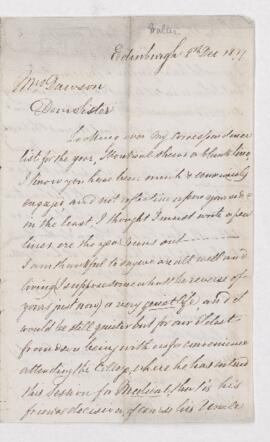 Walter
Edinburgh 8th Dec 1877
Mrs Dawson
Dear Sister
Looking over my correspondence
list for the year, Montreal shews a blank line,
I know you have been much &
engaged and not reflecting upon you
in the least. I thought I must write a few
lines ere the year runs out
I am thankful to say we are all well and
living (I suppose somewhat the reverse of
yours just now) a very quiet life and it
would be still quieter but for our eldest
from being with us for convenience
attending the College, where he has entered
this Session for Medical, that is his
decision, of course his Uncle